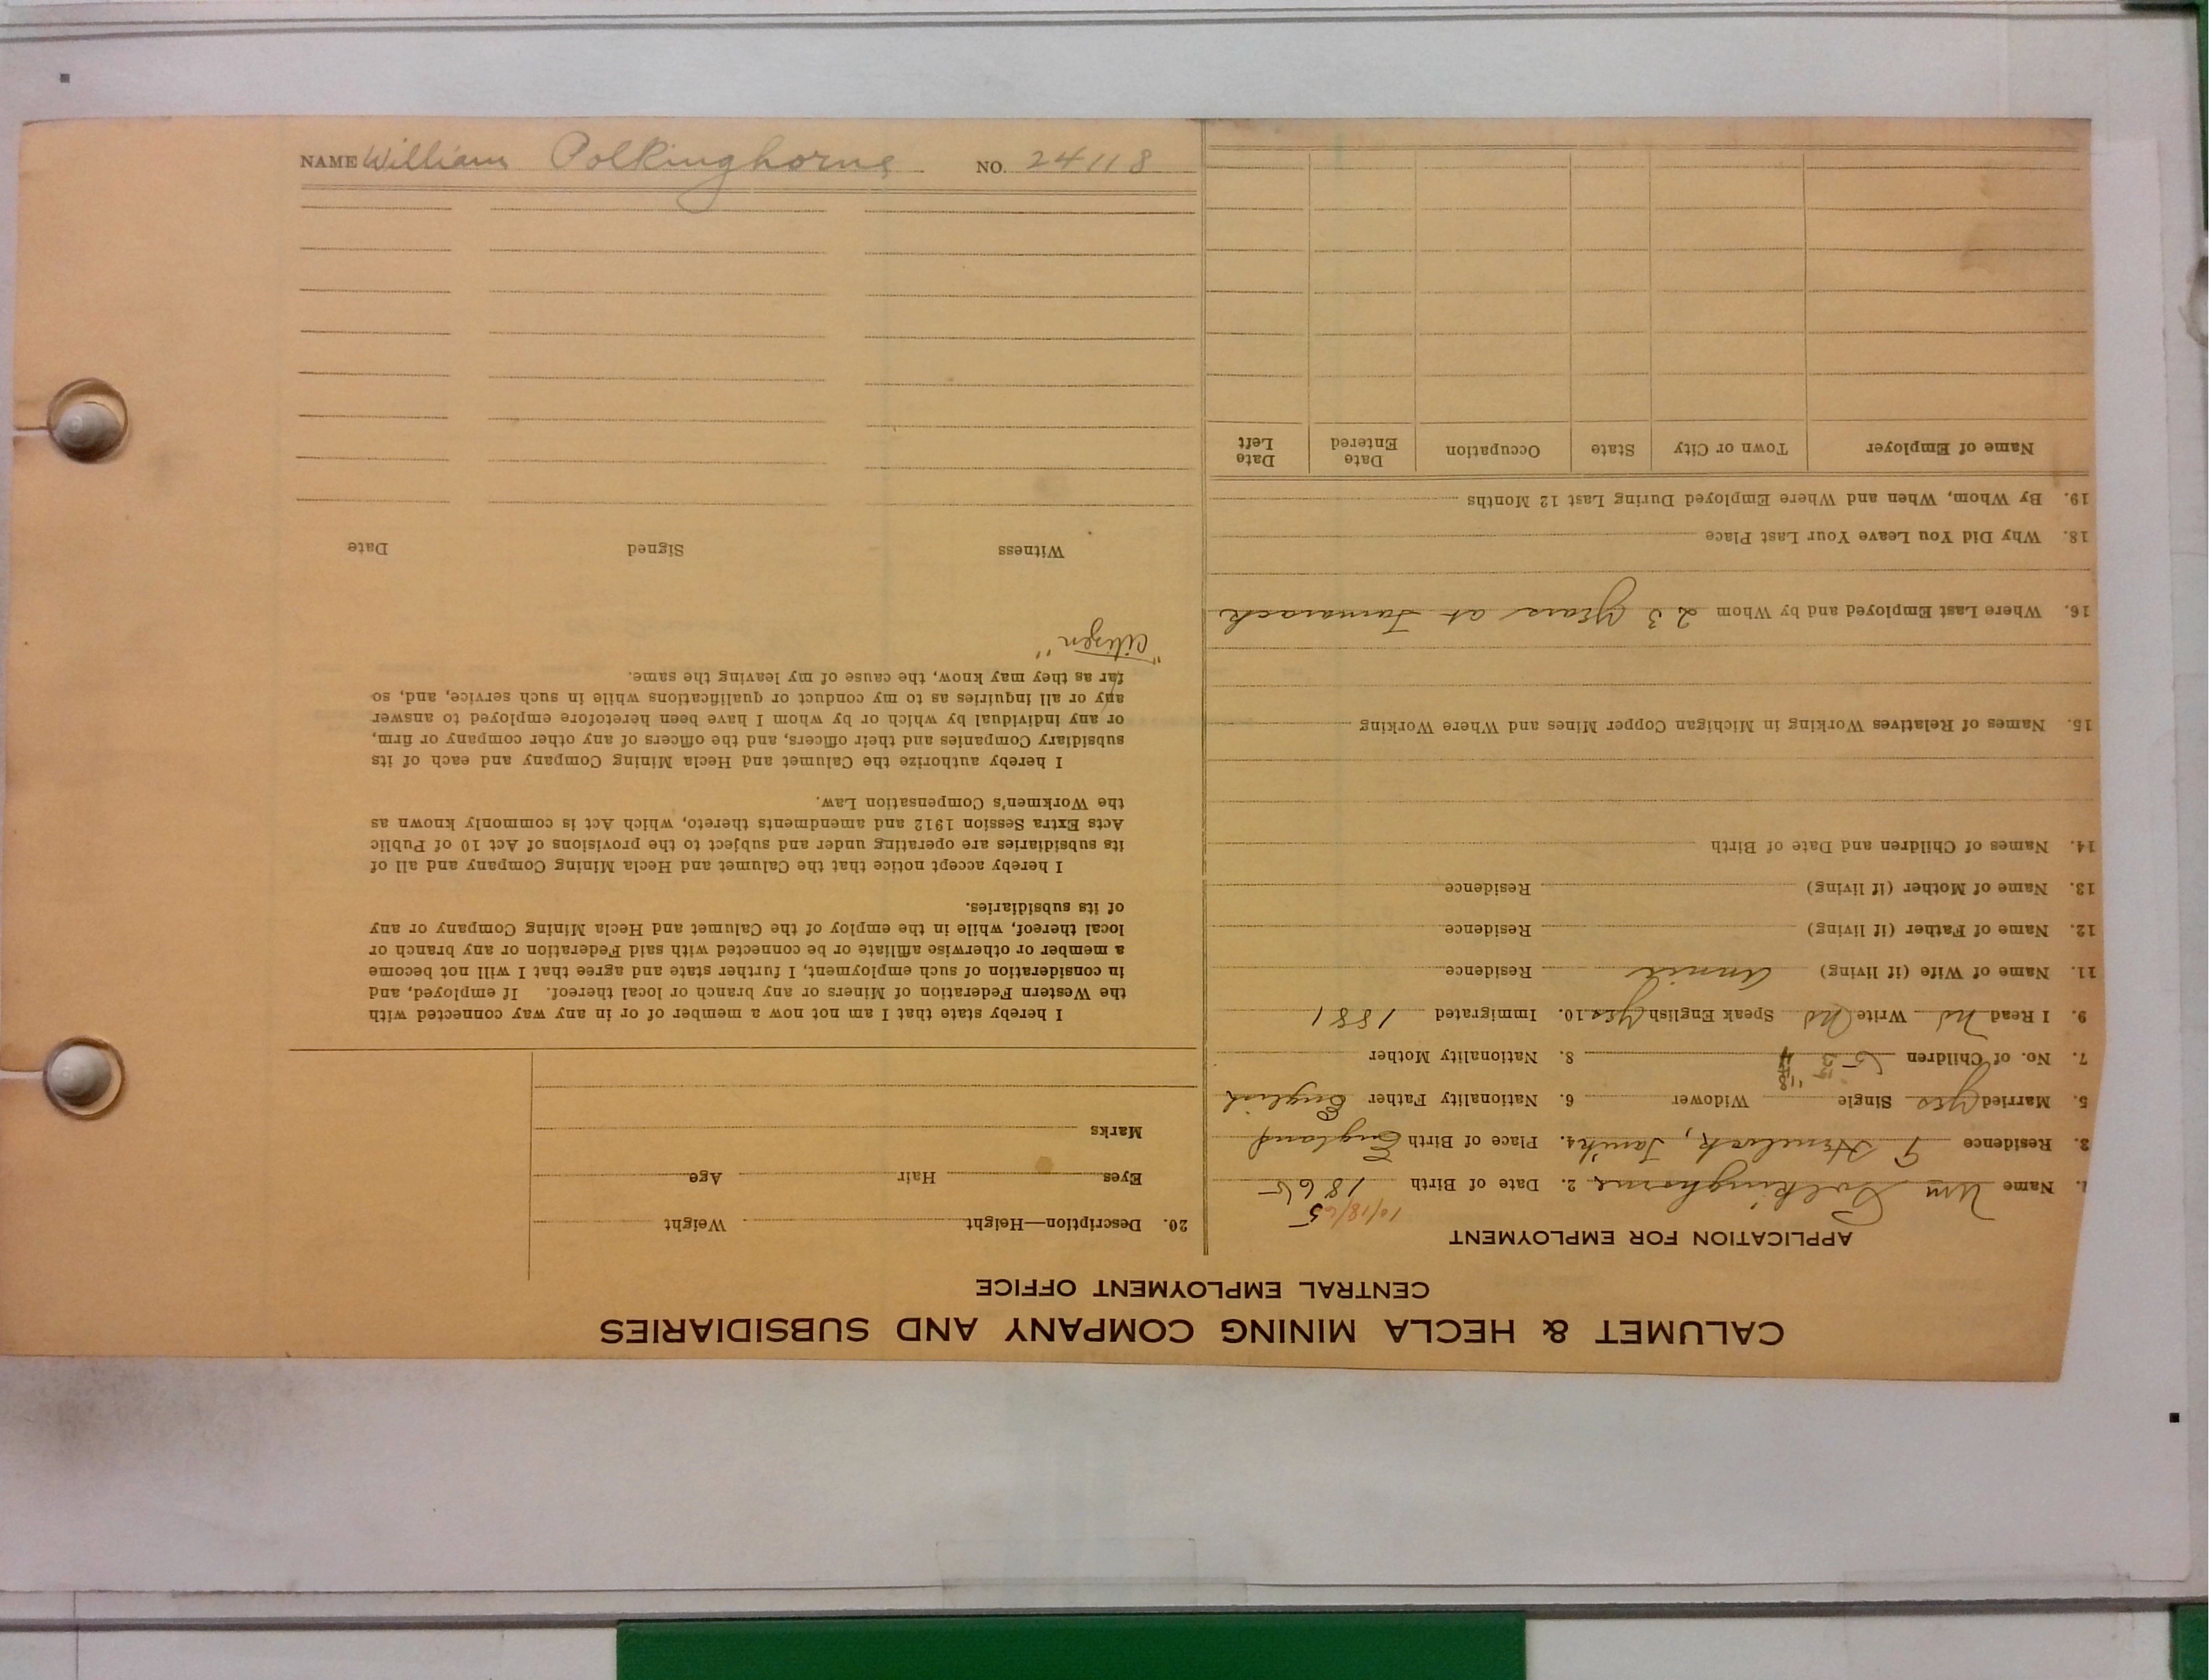 NAME William Polkinghorne NO. 24118
CALUMET & HECLA MINING COMPANY AND SUBSIDIARIES
CENTRAL EMPLOYMENT OFFICE
APPLICATION FOR EMPLOYMENT
10/18/65
1. Name Wm Polkinghorne 2. Date of Birth 1865
3. Residence Hemlock, 4. Place of Birth England
5. Married Yes Single Widower 6. Nationality Father English
7. No. of Children 5 8. Nationality Mother
9. I Read No Write No Speak English Yes 10. Immigrated 1881
11. Name of Wife (if living) Annie Residence
12. Name of Father (if living) Residence
13. Name of Mother (if living) Residence
14. Names of Children and Date of Birth
15. Names of Relatives Working in Michigan Copper Mines and Where Working
16. Where Last Employed and by Whom 23 years at Tamarack
18. Why Did You Leave Your Last Place
19. By Whom, When and Where Employed During Last 12 Months
Name of Employer Town or City State Occupation Date Entered Date Left
20. Description—Height Weight
Eyes Hair Age
Marks
I hereby state that I am not now a member of or in any way connected with
the Western Federation of Miners or any branch or local thereof. If employed, and
in consideration of such employment, I further state and agree that I will not become
a member or otherwise affiliate or be connected with said Federation or any branch or
local thereof, while in the employ of the Calumet and Hecla Mining Company or any
of its subsidiaries.
I hereby accept notice that the Calumet and Hecla Mining Company and all of
its subsidiaries are operating under and subject to the provisions of Act 10 of Public
Acts Extra Session 1912 and amendments thereto, which Act is commonly known as
the Workmen's Compensation Law.
I hereby authorize the Calumet and Hecla Mining Company and each of its
subsidiary Companies and their officers, and the officers of any other company or firm,
or any individual by which or by whom I have been heretofore employed to answer
any or all inquiries as to my conduct or qualifications while in such service, and, so
far as they may know, the cause of my leaving the same.
"Citizen"
Witness Signed Date